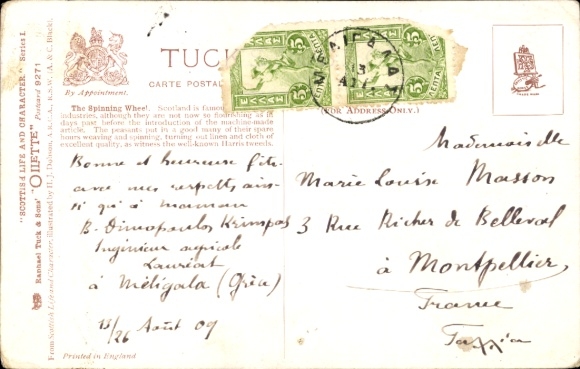 "SCOTTISH LIFE AND CHARACTER." Series I.
RAPHAEL TUCK & SONS' "OILETTE" Postcard 9271
From Scottish Life and Character, illustrated by H. J. Dobson, A.R.C.A., R.S.W. (A. & C. Black).
By Appointment.
TUCK
CARTE POSTAL
(FOR ADDRESS ONLY.)
ΕΛΛΑΣ
5 ΛΕΠΤΑ 5
ΕΛΛΑΣ
5 ΛΕΠΤΑ 5
The Spinning Wheel. Scotland is famous
industries, although they are not now so flourishing as in
days past before the introduction of the machine-made
article. The peasants put in a good many of their spare
hours weaving and spinning, turning out linen and cloth of
excellent quality, as witness the well-known Harris tweeds.
Bonne et heureuse fête
avec mes respects, ain-
si qu'à maman
B. Dimopoulos Krimpas
Ingénieur agricole
Lauréat
à Méligala (Grèce)
13/26 Août 09
Mademoiselle
Marie Louise Masson
3 Rue Richer de Belleval
à Montpellier
France
Γαλλία
Printed in England